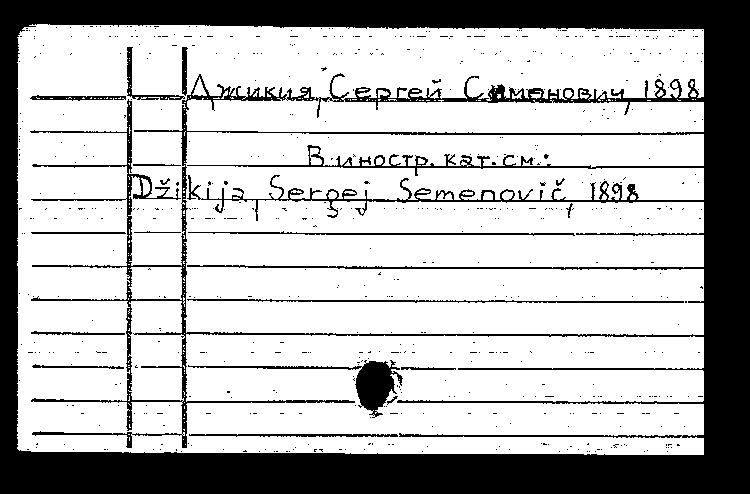 Джикия, Сергей Семенович, 1898
В иностр. кат. см.:
Džikija, Sergej Semenovič, 1898